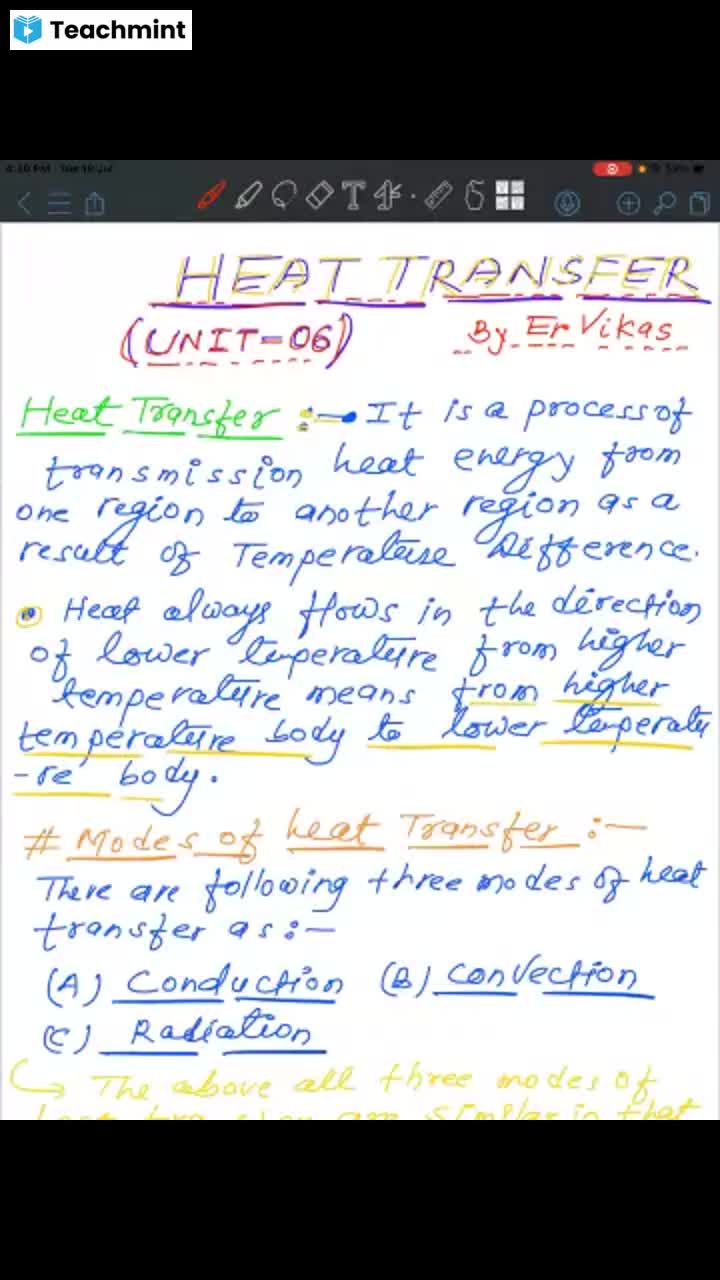 Teachmint
HEAT TRANSFER
(UNIT-06) By Er Vikas
Heat Transfer :- It is a process of
transmission heat energy from
one region to another region as a
result of Temperature Difference.
Heat always flows in the direction
of lower temperature from higher
temperature means from higher
temperature body to lower temperatu
-re body.
# Modes of heat Transfer :-
There are following three modes of heat
transfer as :-
(A) Conduction (B) Convection
(C) Radiation
The above all three modes of
are similar in that